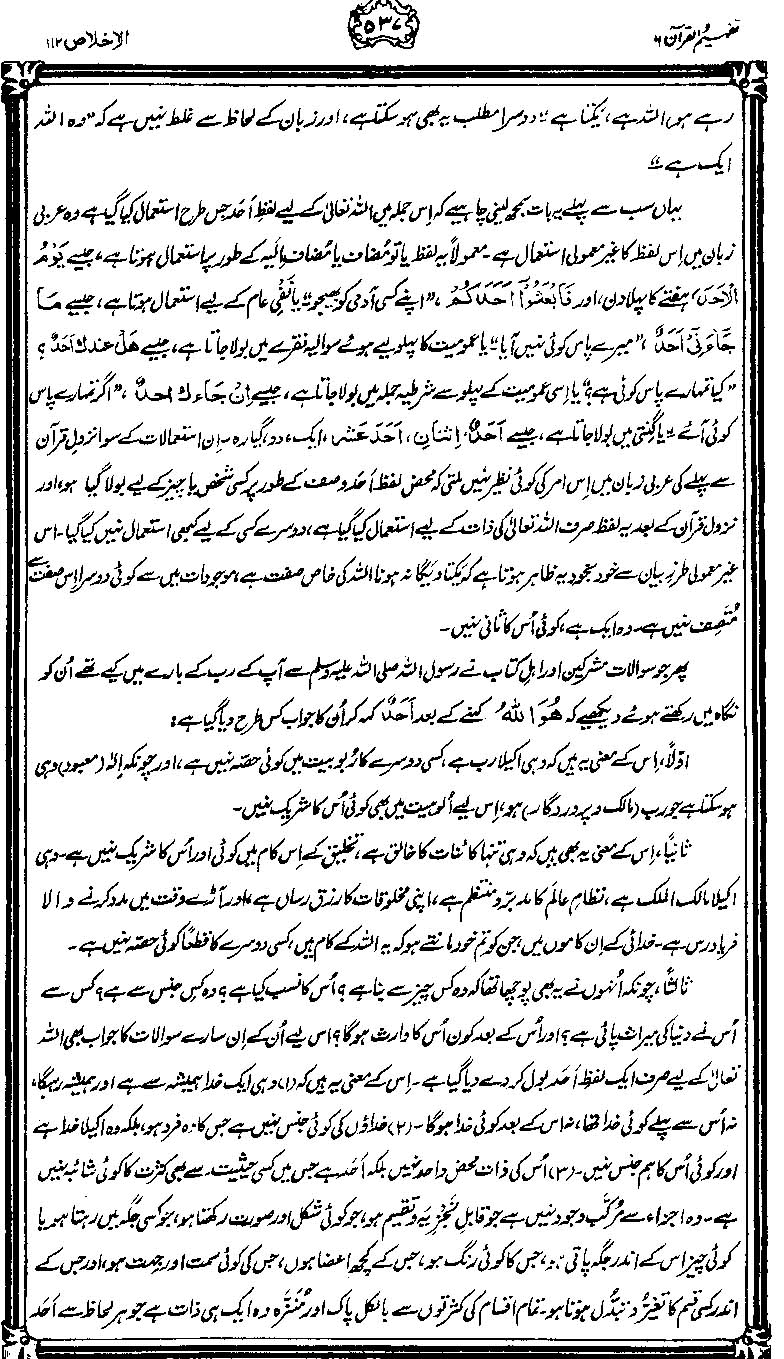 تفہیم القرآن ۶
۵۳۷
الاخلاص ۱۱۲
رہے ہو، اللہ ہے، یکتا ہے“۔ دوسرا مطلب یہ بھی ہو سکتا ہے، اور زبان کے لحاظ سے غلط نہیں ہے کہ ”وہ اللہ
ایک ہے“۔
یہاں سب سے پہلے یہ بات سمجھ لینی چاہیے کہ اِس جملہ میں اللہ تعالیٰ کے لیے لفظِ اَحَد جس طرح استعمال کیا گیا ہے وہ عربی
زبان میں اِس لفظ کا غیر معمولی استعمال ہے۔ معمولاً یہ لفظ یا تو مُضاف یا مُضاف اِلیہ کے طور پر استعمال ہوتا ہے، جیسے یَوْمُ
الْاَحَدِ، ہفتے کا پہلا دن، اور فَابْعَثُوْٓا اَحَدَکُمْ، ”اپنے کسی آدمی کو بھیجو“ یا نفیِ عام کے لیے استعمال ہوتا ہے، جیسے مَا
جَآءَنِیْ اَحَدٌ، ”میرے پاس کوئی نہیں آیا“ یا عمومیت کا پہلو لیے ہوئے سوالیہ فقرے میں بولا جاتا ہے، جیسے ھَلْ عِندَکَ اَحَدٌ؟
”کیا تمہارے پاس کوئی ہے؟“ یا اِسی عمومیت کے پہلو سے شرطیہ جملہ میں بولا جاتا ہے، جیسے اِنْ جَآءَکَ اَحدٌ، ”اگر تمہارے پاس
کوئی آئے“۔ یا گنتی میں بولا جاتا ہے، جیسے اَحَدٌ، اِثْنَانِ، اَحَدَ عَشَر، ایک، دو، گیارہ۔ اِن استعمالات کے سوا نزولِ قرآن
سے پہلے کی عربی زبان میں اِس امر کی کوئی نظیر نہیں ملتی کہ محض لفظ اَحَد وصف کے طور پر کسی شخص یا چیز کے لیے بولا گیا ہو، اور
نزول قرآن کے بعد یہ لفظ صرف اللہ تعالیٰ کی ذات کے لیے استعمال کیا گیا ہے، دوسرے کسی کے لیے کبھی استعمال نہیں کیا گیا۔ اس
غیر معمولی طرزِ بیان سے خود بخود یہ ظاہر ہوتا ہے کہ یکتا و یگانہ ہونا اللہ کی خاص صفت ہے، موجودات میں سے کوئی دوسرا اِس صفت سے
مُتَّصِف نہیں ہے۔ وہ ایک ہے، کوئی اُس کا ثانی نہیں۔
پھر جو سوالات مشرکین اور اہلِ کتاب نے رسول اللہ صلی اللہ علیہ وسلم سے آپ کے رب کے بارے میں کیے تھے اُن کو
نگاہ میں رکھتے ہوئے دیکھیے کہ ھُوَ اللّٰہُ کہنے کے بعد اَحَدٌ کہہ کر اُن کا جواب کس طرح دیا گیا ہے:
اوّلاً، اِس کے معنی یہ ہیں کہ وہی اکیلا رب ہے، کسی دوسرے کا ربوبیت میں کوئی حصّہ نہیں ہے، اور چونکہ اِلٰہ (معبود) وہی
ہو سکتا ہے جو رب (مالک و پروردگار) ہو، اِس لیے اُلوہیت میں بھی کوئی اُس کا شریک نہیں۔
ثانیاً، اِس کے معنی یہ بھی ہیں کہ وہی تنہا کائنات کا خالق ہے، تخلیق کے اِس کام میں کوئی اور اُس کا شریک نہیں ہے۔ وہی
اکیلا مالک الملک ہے، نظامِ عالَم کا مدبّر و منتظم ہے، اپنی مخلوقات کا رزق رساں ہے، اور آڑے وقت میں مدد کرنے والا
فریاد رس ہے۔ خدائی کے اِن کاموں میں، جن کو تم خود مانتے ہو کہ یہ اللہ کے کام ہیں، کسی دوسرے کا قطعاً کوئی حصّہ نہیں ہے۔
ثالثاً، چونکہ اُنہوں نے یہ بھی پوچھا تھا کہ وہ کس چیز سے بنا ہے؟ اُس کا نسب کیا ہے؟ وہ کِس جنس سے ہے؟ کس سے
اُس نے دنیا کی میراث پائی ہے؟ اور اُس کے بعد کون اُس کا وارث ہوگا؟ اس لیے اُن کے اِن سارے سوالات کا جواب بھی اللہ
تعالیٰ کے لیے صرف ایک لفظِ اَحَد بول کر دے دیا گیا ہے۔ اِس کے معنی یہ ہیں کہ (۱) وہی ایک خدا ہمیشہ سے ہے اور ہمیشہ رہیگا،
نہ اُس سے پہلے کوئی خدا تھا، نہ اس کے بعد کوئی خدا ہوگا۔ (۲) خداؤں کی کوئی جنس نہیں ہے جس کا وہ فرد ہو، بلکہ وہ اکیلا خدا ہے
اور کوئی اُس کا ہم جنس نہیں۔ (۳) اُس کی ذات محض واحد نہیں بلکہ اَحَد ہے جس میں کسی حیثیت سے بھی کثرت کا کوئی شائبہ نہیں
ہے۔ وہ اجزاء سے مُرکّب وجود نہیں ہے جو قابلِ تَجْزِیہ و تقیسم ہو، جو کوئی شکل اور صورت رکھتا ہو، جو کسی جگہ میں رہتا ہو یا
کوئی چیز اس کے اندر جگہ پاتی ہو، جس کا کوئی رنگ ہو، جس کے کچھ اعضا ہوں، جس کی کوئی سمت اور جہت ہو، اور جس کے
اندر کسی قسم کا تغیّر و تبدُّل ہوتا ہو۔ تمام اقسام کی کثرتوں سے بالکل پاک اور مُنَزَّہ وہ ایک ہی ذات ہے جو ہر لحاظ سے اَحَد